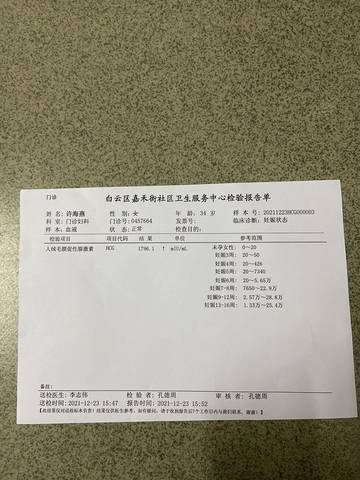 门诊
白云区嘉禾街社区卫生服务中心检验报告单
姓 名: 许海燕 性 别: 女 年 龄: 34 岁 样 本 号: 20211223HCG000003
科 室: 门诊妇科 门诊号: 0457664 发票号: 临床诊断: 妊娠状态
样 本: 血液 状 态: 正常 检查目的:
检验项目 项目代码 结 果 单 位 参考范围
人绒毛膜促性腺激素 HCG 1796.1 ↑ mIU/mL 未孕女性: 0~20
妊娠3周: 20~50
妊娠4周: 20~426
妊娠5周: 20~7340
妊娠6周: 20~5.65万
妊娠7-8周: 7650~22.9万
妊娠9-12周: 2.57万~28.8万
妊娠13-16周: 1.33万~25.4万
备注:
送检医生: 李志伟 检 验 者: 孔德周 审 核 者: 孔德周
送检时间: 2021-12-23 15:47 报告时间: 2021-12-23 15:52